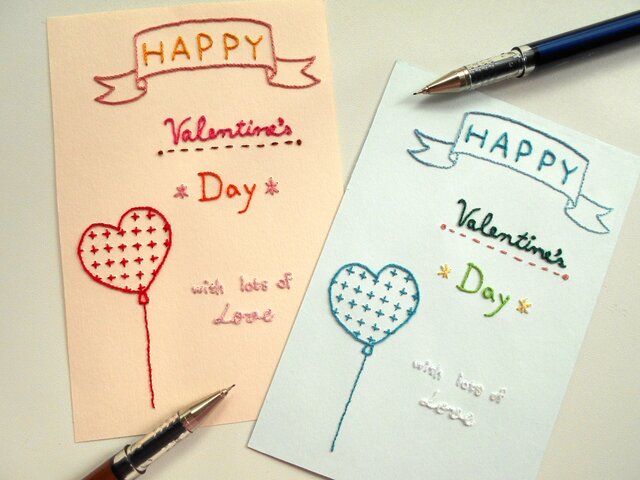 HAPPY
Valentine's
Day
with lots of
Love
HAPPY
Valentine's
Day
with lots of
Love